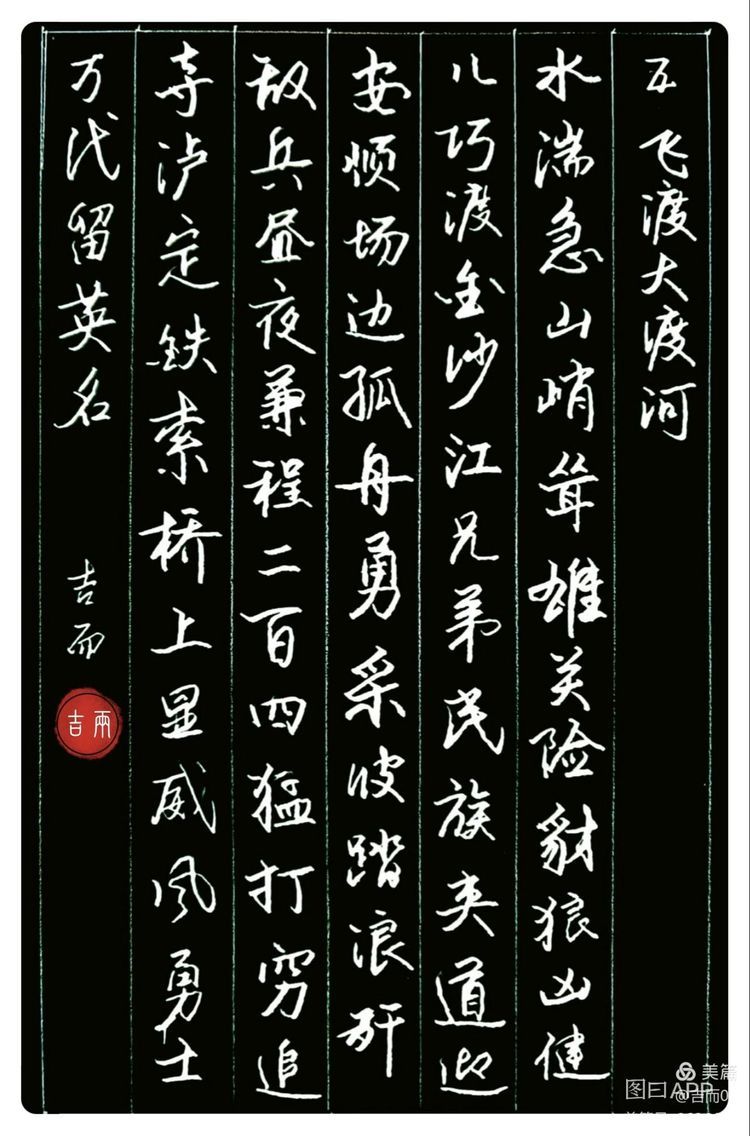 五 飞渡大渡河
水湍急山峭耸雄关险豺狼凶健
儿巧渡金沙江兄弟民族夹道迎
安顺场边孤舟勇采波踏浪歼
敌兵昼夜兼程二百四猛打穷追
夺泸定铁索桥上显威风勇士
万代留英名
吉而
吉而
美篇
图曰APP
@吉而0